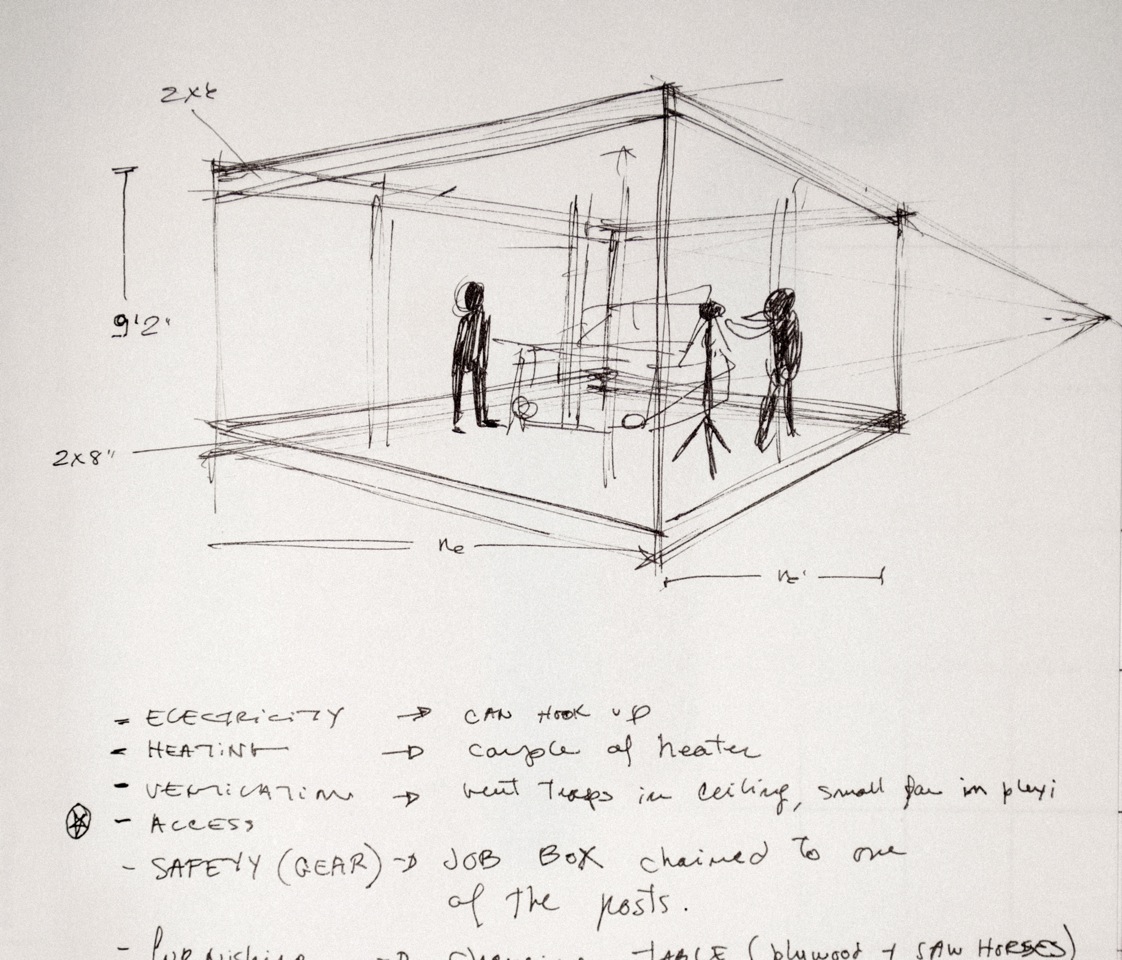 2x6
9'2"
2x8"
- ELECTRICITY → CAN HOOK UP
- HEATING → couple of heater
- VENTILATION → vent traps in ceiling, small fan in plexi
- ACCESS
- SAFETY (GEAR) → JOB BOX chained to one
of the posts.
- Furnishing → TABLE (plywood + SAW HORSES)